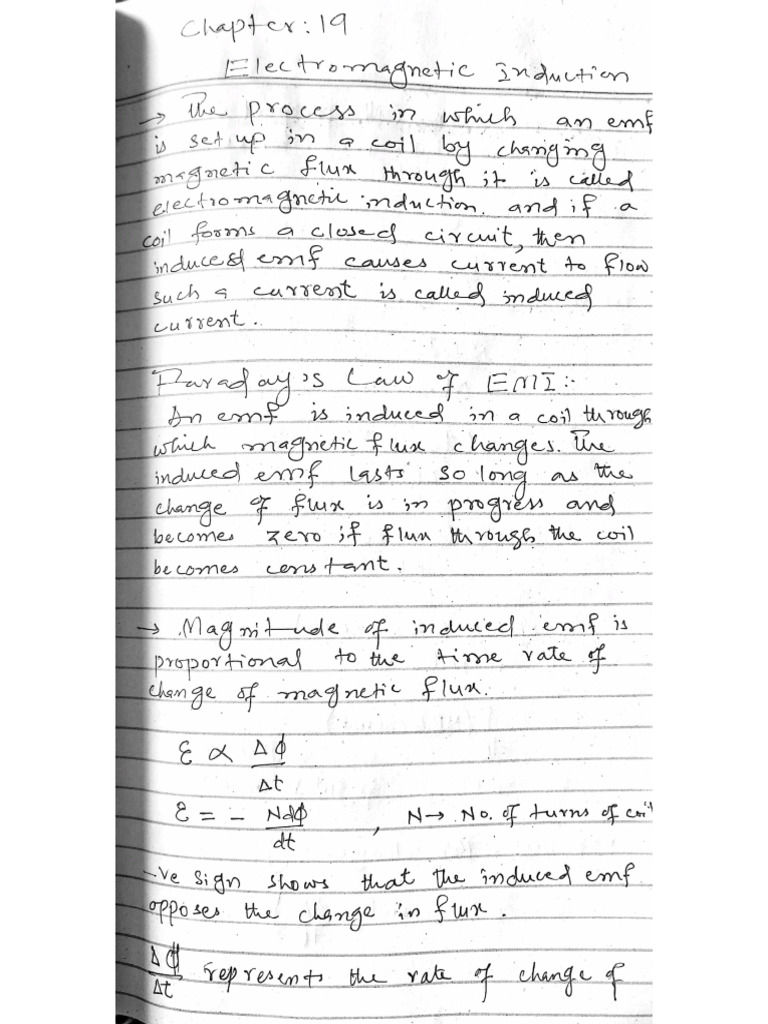 Chapter: 19
Electromagnetic Induction
→ The process in which an emf
is set up in a coil by changing
magnetic flux through it is called
electromagnetic induction. and if a
coil forms a closed circuit, then
induced emf causes current to flow
such a current is called induced
current.
Faraday's Law of EMI:-
An emf is induced in a coil through
which magnetic flux changes. The
induced emf lasts so long as the
change of flux is in progress and
becomes zero if flux through the coil
becomes constant.
→ Magnitude of induced emf is
proportional to the time rate of
change of magnetic flux.
ε ∝ Δϕ
Δt
ε = - Ndϕ , N→ No. of turns of coil
dt
-ve sign shows that the induced emf
opposes the change in flux.
Δϕ represents the rate of change of
Δt